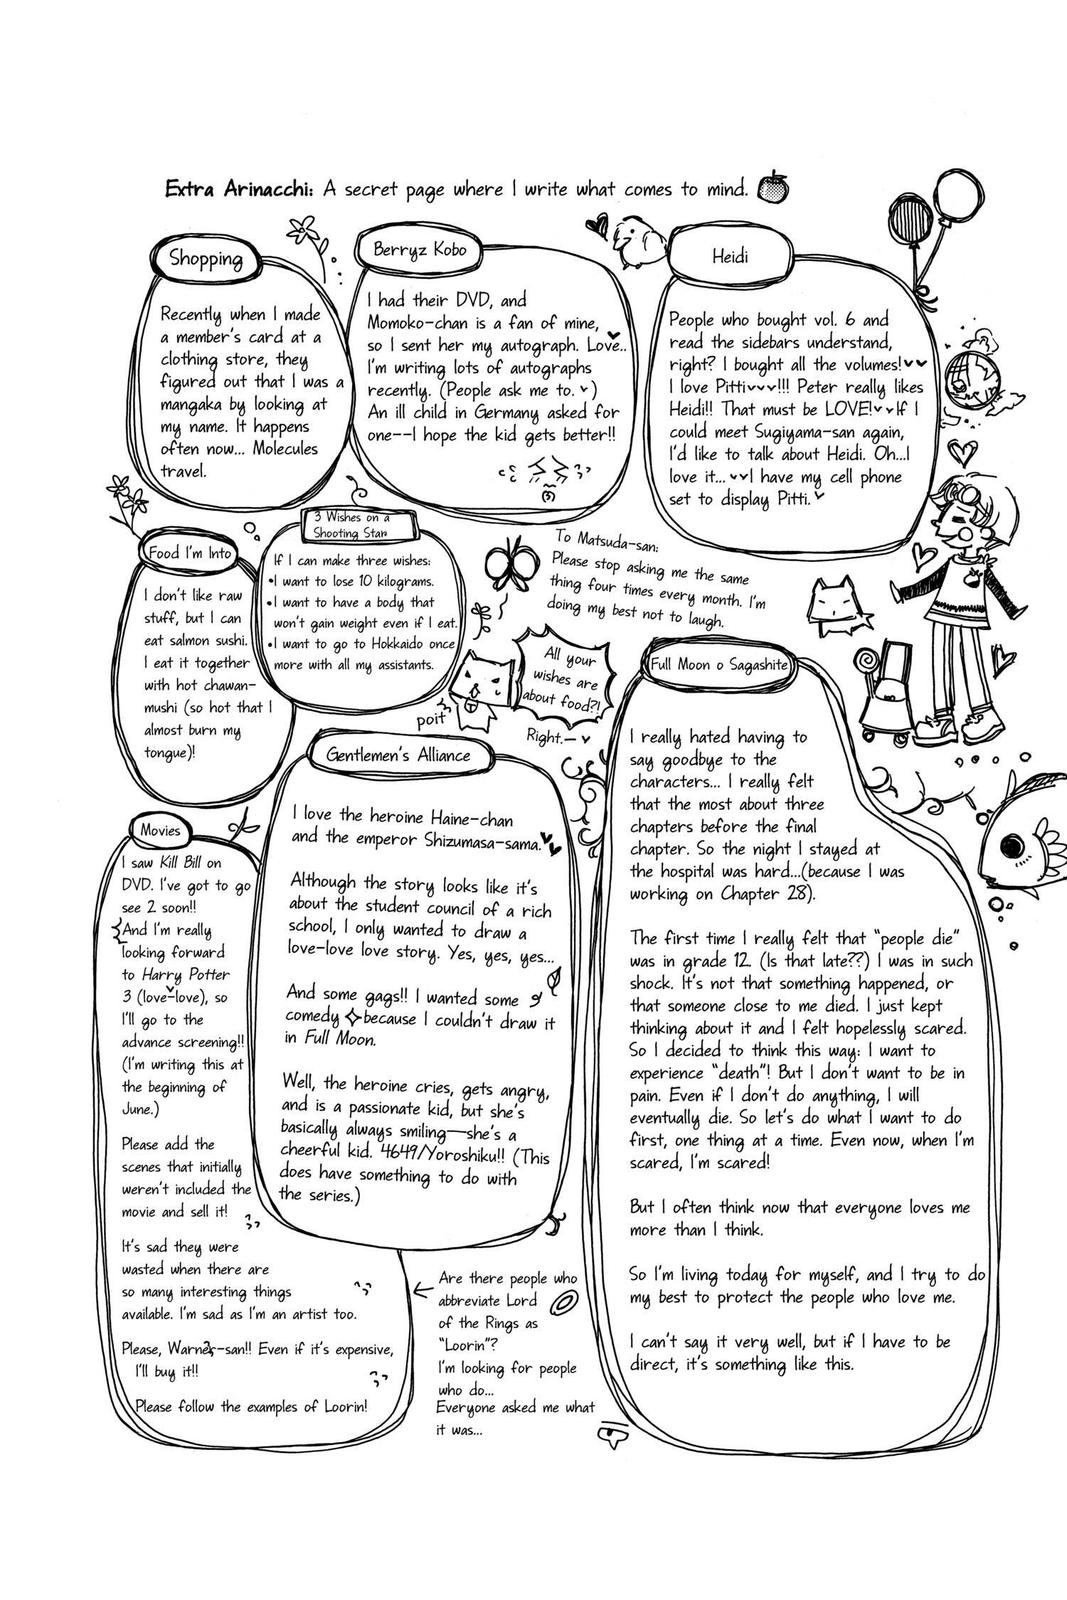 Extra Arinacchi: A secret page where I write what comes to mind.
Shopping
Recently when I made
a member's card at a
clothing store, they
figured out that I was a
mangaka by looking at
my name. It happens
often now... Molecules
travel.
Berryz Kobo
I had their DVD, and
Momoko-chan is a fan of mine,
so I sent her my autograph. Love..
I'm writing lots of autographs
recently. (People ask me to. )
An ill child in Germany asked for
one--I hope the kid gets better!!
Heidi
People who bought vol. 6 and
read the sidebars understand,
right? I bought all the volumes!
I love Pitti!!! Peter really likes
Heidi!! That must be LOVE! If I
could meet Sugiyama-san again,
I'd like to talk about Heidi. Oh...I
love it... I have my cell phone
set to display Pitti.
Food I'm Into
I don't like raw
stuff, but I can
eat salmon sushi.
I eat it together
with hot chawan-
mushi (so hot that I
almost burn my
tongue)!
3 Wishes on a
Shooting Star
If I can make three wishes:
•I want to lose 10 kilograms.
•I want to have a body that
won't gain weight even if I eat.
•I want to go to Hokkaido once
more with all my assistants.
To Matsuda-san:
Please stop asking me the same
thing four times every month. I'm
doing my best not to laugh.
All your
wishes are
about food?!
poit
Right.—
Gentlemen's Alliance
I love the heroine Haine-chan
and the emperor Shizumasa-sama.
Although the story looks like it's
about the student council of a rich
school, I only wanted to draw a
love-love love story. Yes, yes, yes...
And some gags!! I wanted some
comedy because I couldn't draw it
in Full Moon.
Well, the heroine cries, gets angry,
and is a passionate kid, but she's
basically always smiling—she's a
cheerful kid. 4649/Yoroshiku!! (This
does have something to do with
the series.)
Movies
I saw Kill Bill on
DVD. I've got to go
see 2 soon!!
And I'm really
looking forward
to Harry Potter
3 (love-love), so
I'll go to the
advance screening!!
(I'm writing this at
the beginning of
June.)
Please add the
scenes that initially
weren't included the
movie and sell it!
It's sad they were
wasted when there are
so many interesting things
available. I'm sad as I'm an artist too.
Please, Warner-san!! Even if it's expensive,
I'll buy it!!
Please follow the examples of Loorin!
Are there people who
abbreviate Lord
of the Rings as
"Loorin"?
I'm looking for people
who do...
Everyone asked me what
it was...
Full Moon o Sagashite
I really hated having to
say goodbye to the
characters... I really felt
that the most about three
chapters before the final
chapter. So the night I stayed at
the hospital was hard...(because I was
working on Chapter 28).
The first time I really felt that "people die"
was in grade 12. (Is that late??) I was in such
shock. It's not that something happened, or
that someone close to me died. I just kept
thinking about it and I felt hopelessly scared.
So I decided to think this way: I want to
experience "death"! But I don't want to be in
pain. Even if I don't do anything, I will
eventually die. So let's do what I want to do
first, one thing at a time. Even now, when I'm
scared, I'm scared!
But I often think now that everyone loves me
more than I think.
So I'm living today for myself, and I try to do
my best to protect the people who love me.
I can't say it very well, but if I have to be
direct, it's something like this.